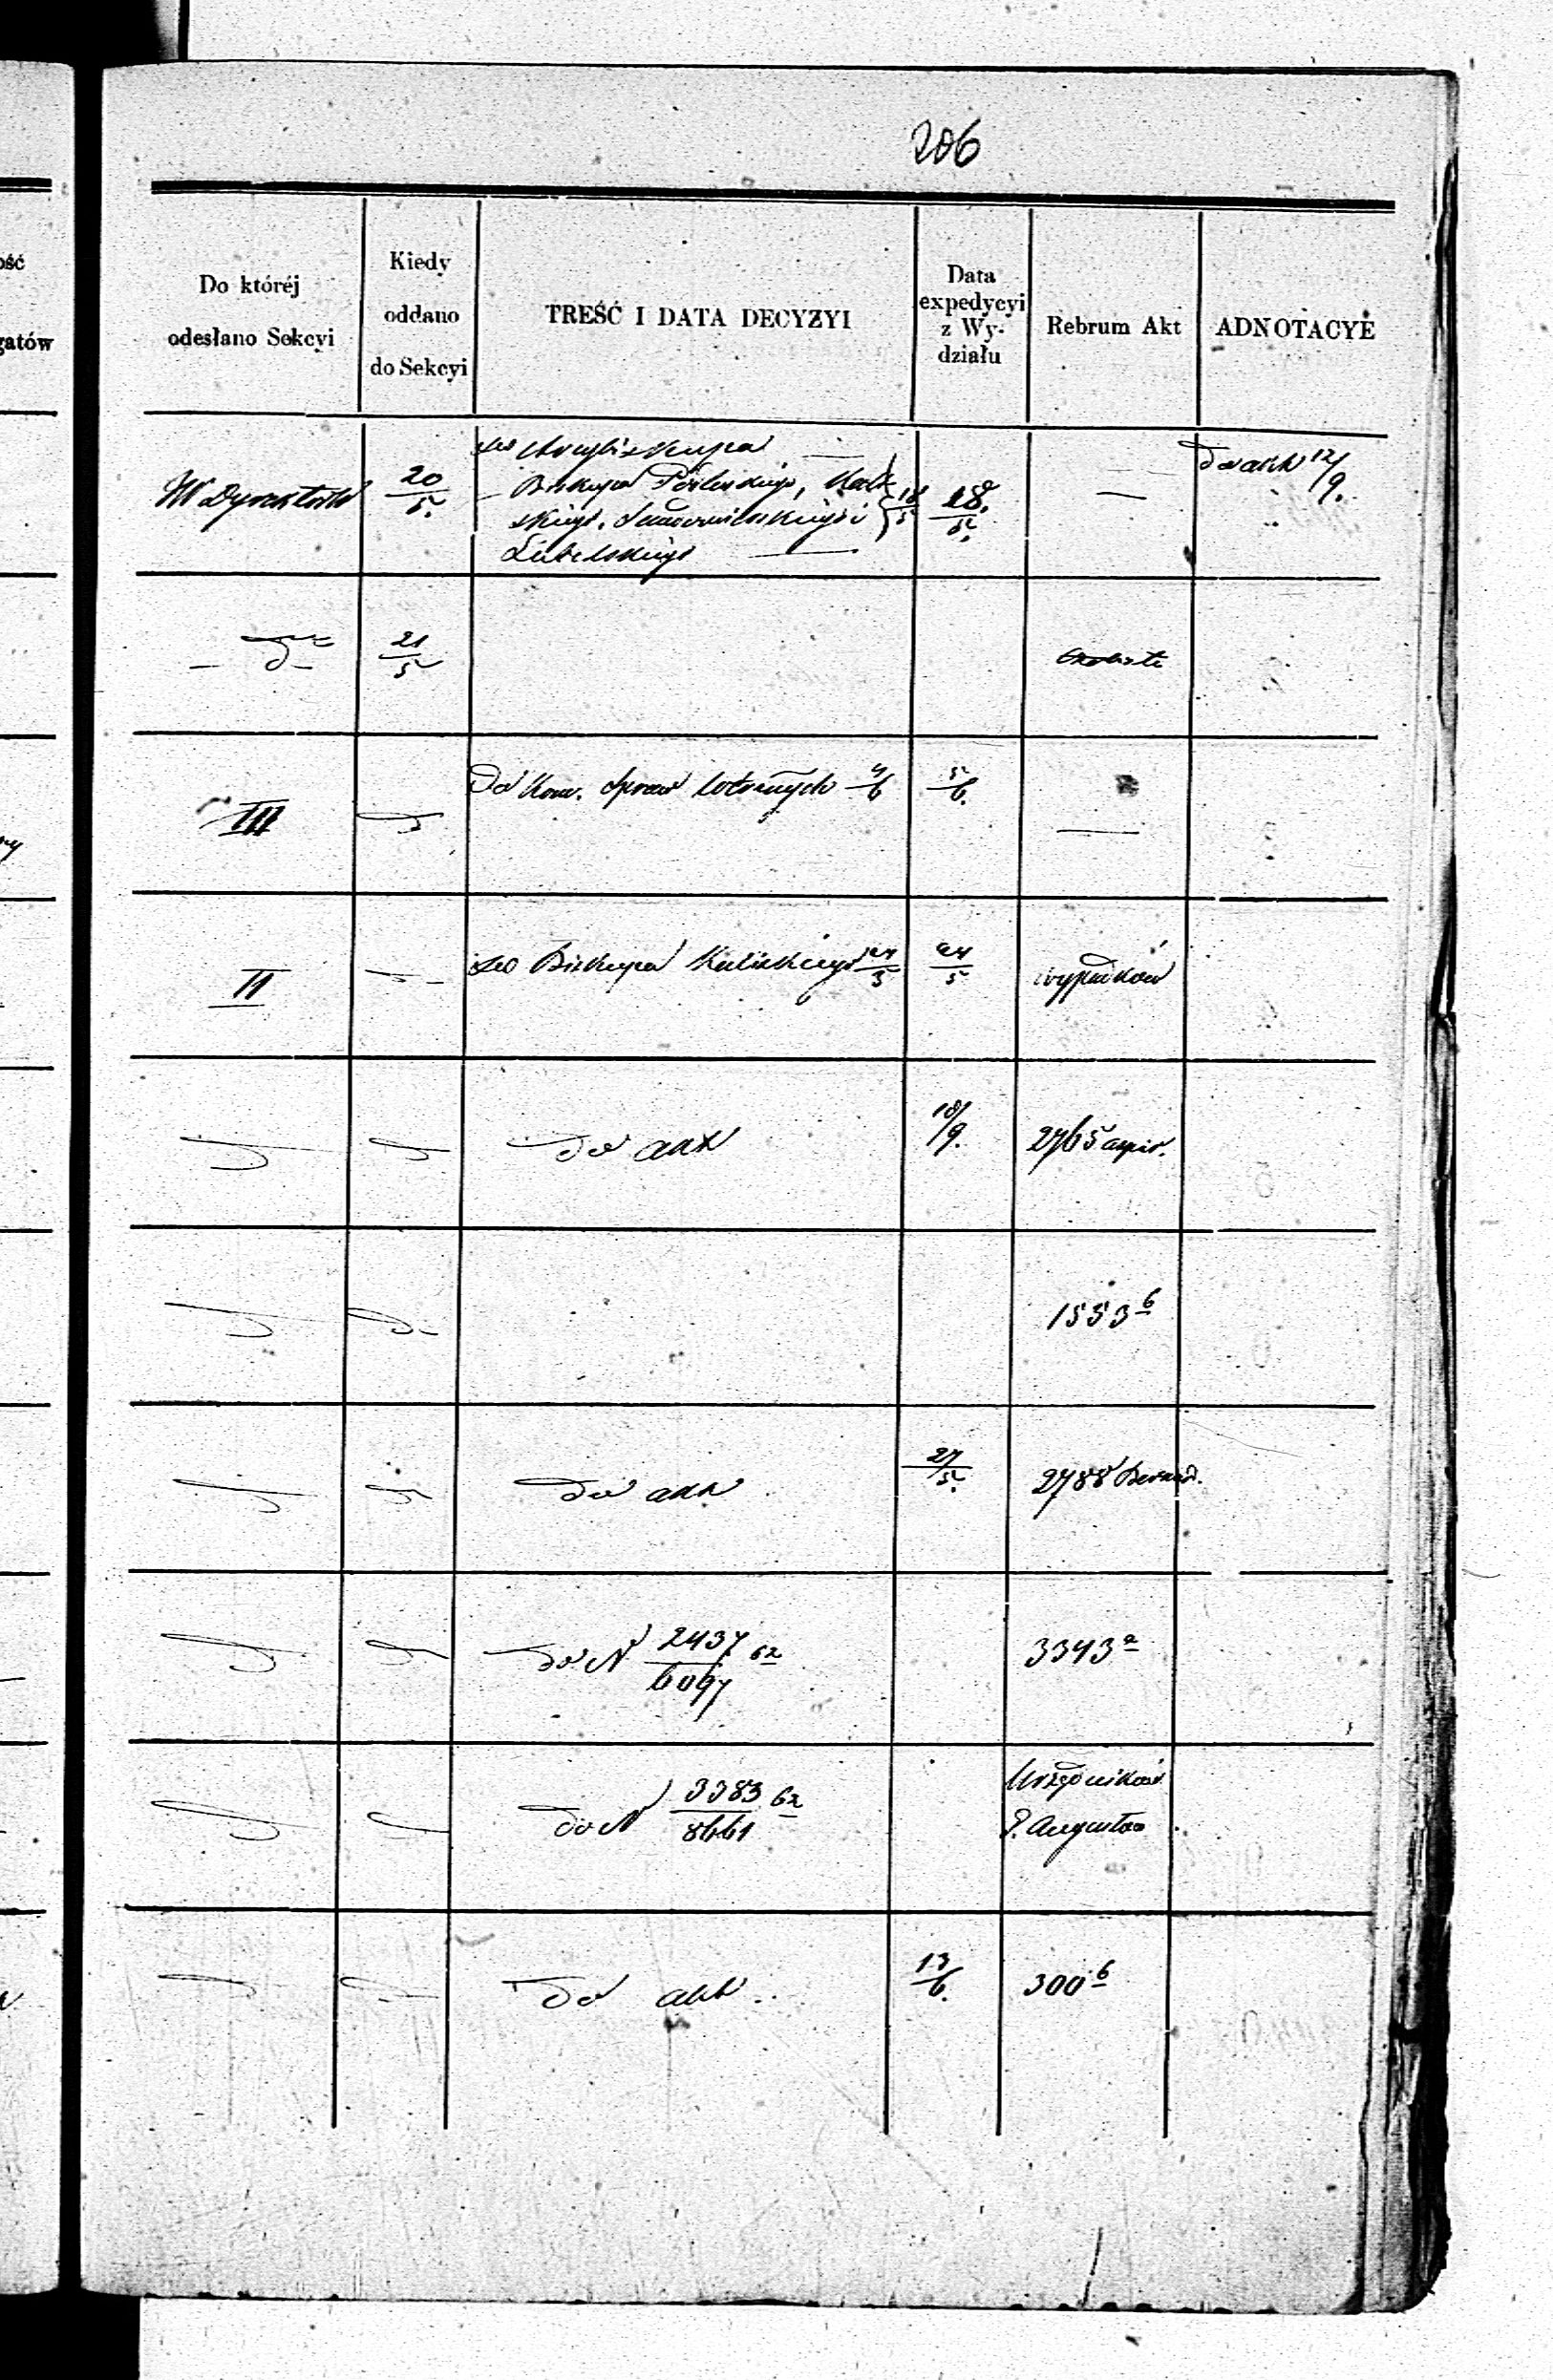 206
ość
gatów
Do któréj
odesłano Sekcyi
Kiedy
oddano
do Sekcyi
TREŚĆ I DATA DECYZYI
Data
expedycyi
z Wy-
działu
Rebrum Akt
ADNOTACYE
W Dyrektor
20/5.
do Arcybiskupa
Biskupa Podlaskiego,
skiego, Sandomirskiego i
Lubelskiego
18/5
28./5.
—
do akt 12/9.
— dto —
21/5
III
Do Kom. Spraw 4/6
5/6.
—
II
do Biskupa Kaliskiego 24/5
24/5
wypadków
do akt
18/9.
2765
1553 6
do akt
27/5.
2788 Bernard.
do N 2437/6097 62
3343 a
do N 3383/8661 62
Urzędników
P. Augustow
do akt
13/6.
300 6